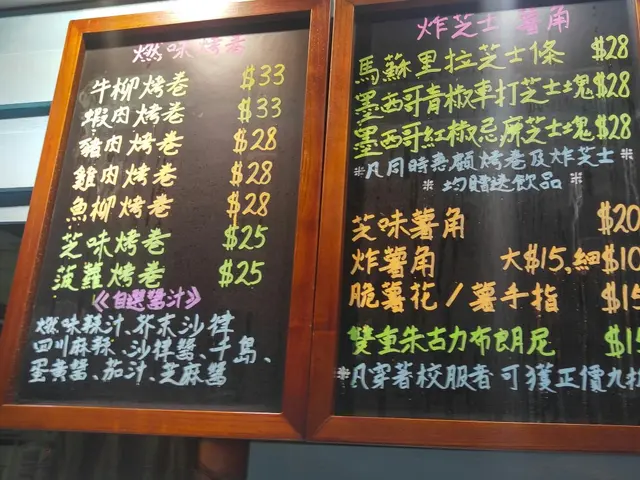 燃味烤卷
牛柳烤卷 $33
蝦肉烤卷 $33
豬肉烤卷 $28
雞肉烤卷 $28
魚柳烤卷 $28
芝味烤卷 $25
菠蘿烤卷 $25
《自選醬汁》
燃味辣汁、芥末沙律
四川麻辣、沙律醬、千島、
蛋黃醬、茄汁、芝麻醬
炸芝士薯角
馬蘇里拉芝士條 $28
墨西哥青椒車打芝士塊 $28
墨西哥紅椒忌廉芝士塊 $28
*凡同時惠顧烤卷及炸芝士
*均贈送飲品*
芝味薯角 $20
炸薯角 大$15,細$10
脆薯花/薯手指 $15
雙重朱古力布朗尼 $15
*凡穿著校服者可獲正價九折